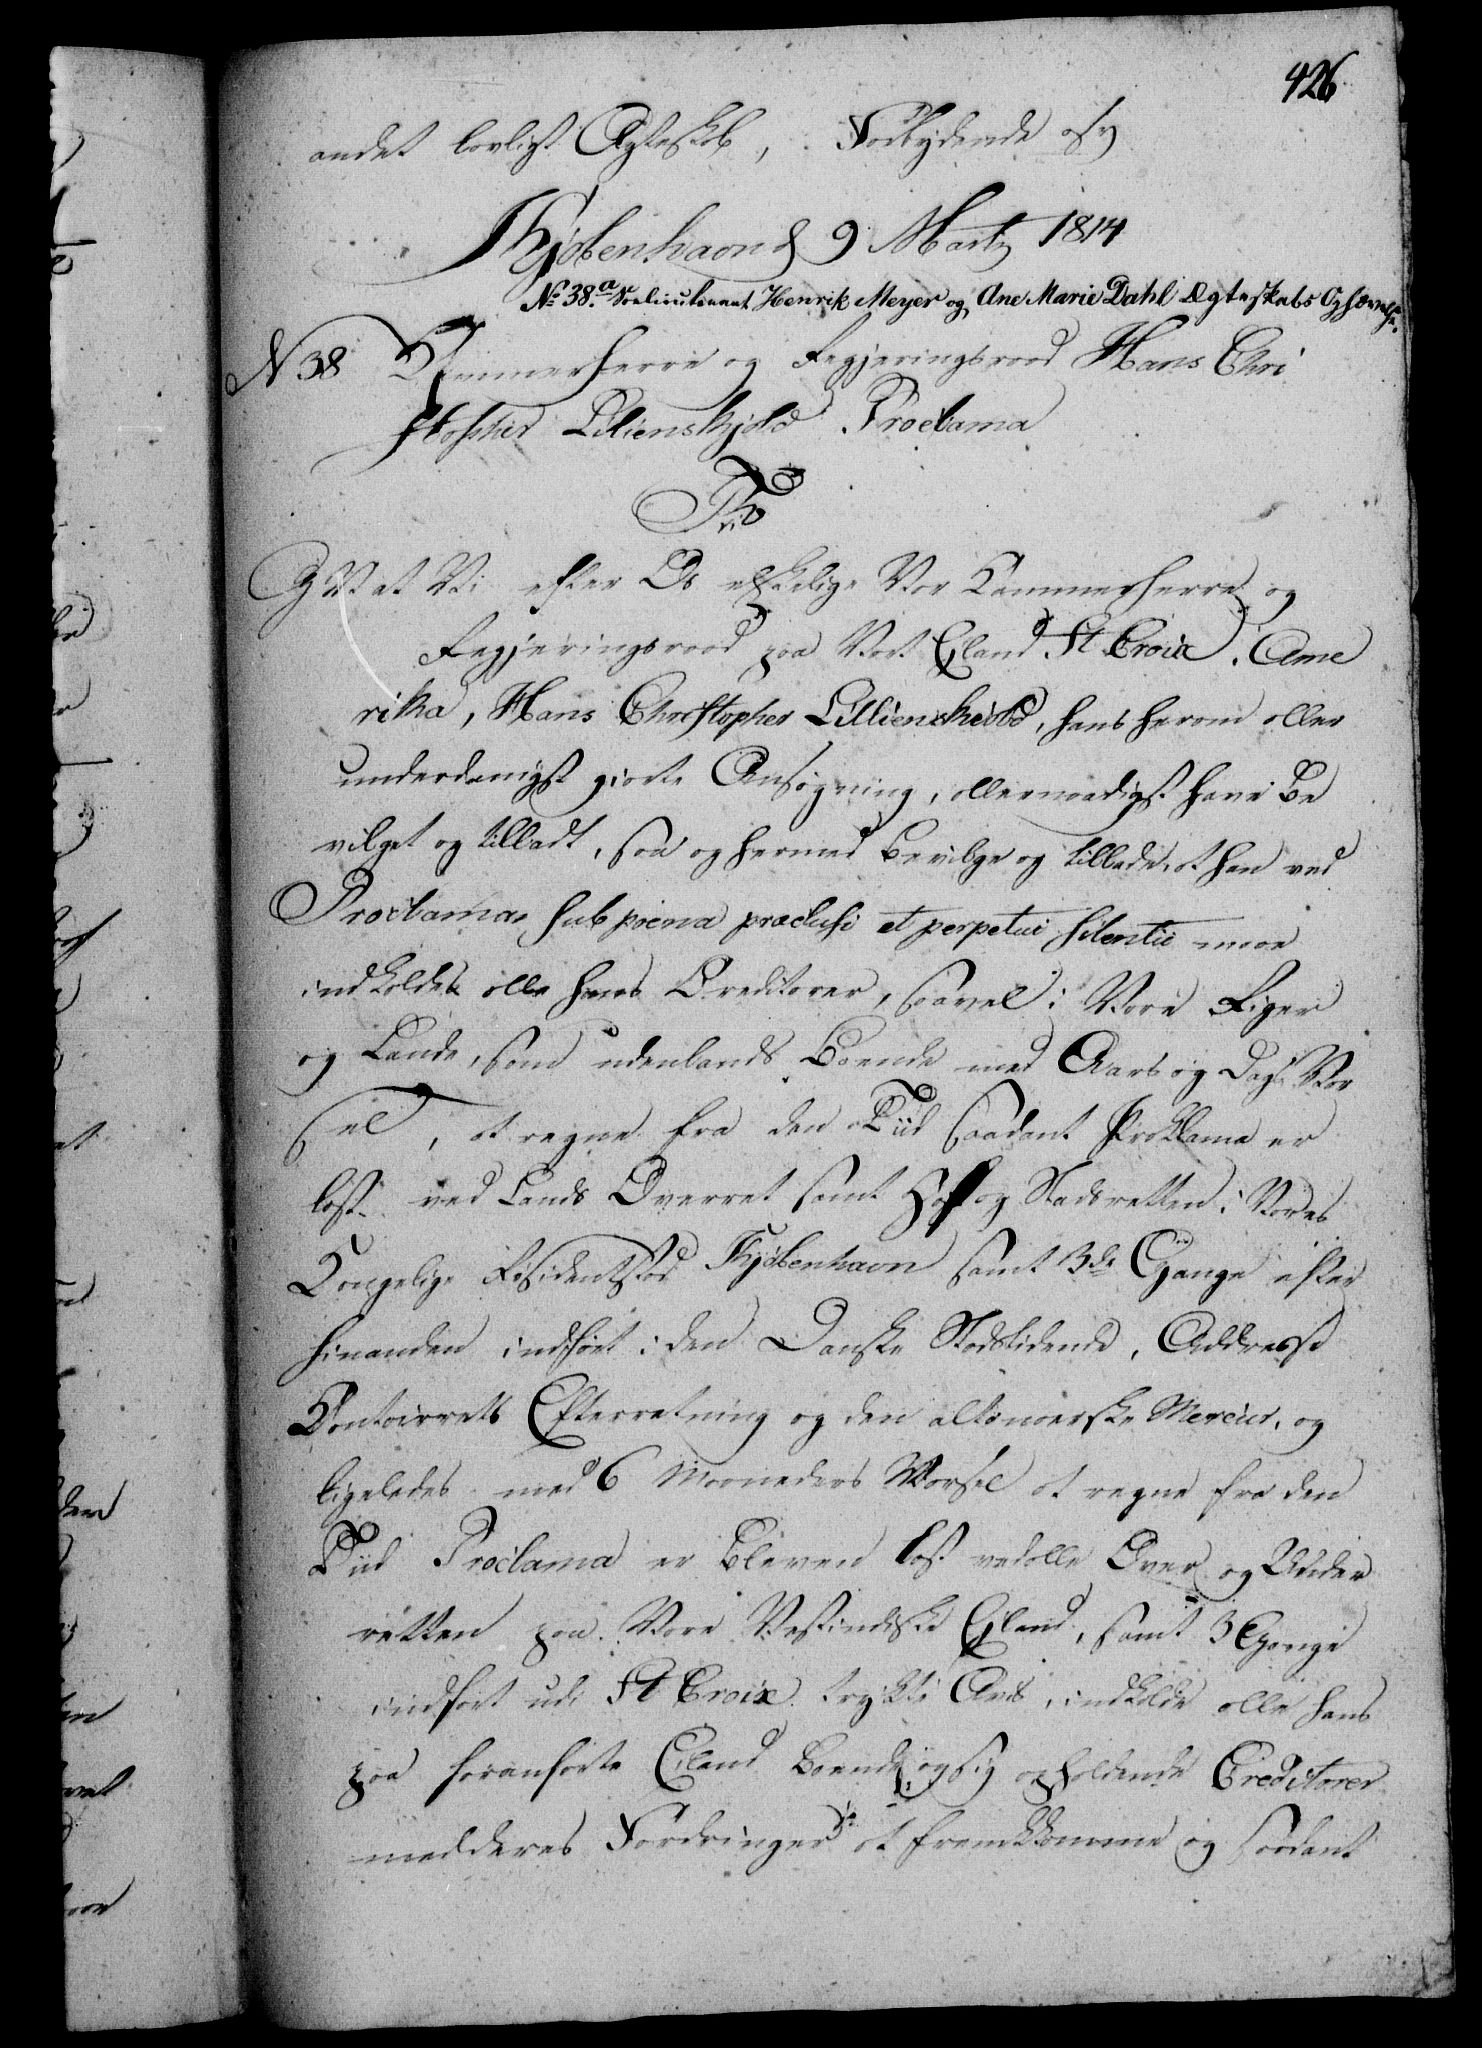 426
andet lovligt Ægteskab, Forbydende osv
Kjøbenhavn d 9 Marty 1814
No 38.a Søelieutenant Henrik Meyer og Ane Marie Dahl Ægteskabs Ophævelse.
N 38 Kammerherre og Regjeringsraad Hans Chri
stopher Lilienskjold Proclama
GV at Vi efter Os elskelige Vor Kammerherre og
Regjeringsraad paa Vort Eyland St Croix i Ame
rika, Hans Christopher Lillienskiold, hans herom aller
underdanigst giorte Ansøgning, allernaadigst have be
vilget og tilladt, saa og hermed bevilge og tillade, at han ved
Proclama, sub poena præclusi et perpetui silentii maae
indkalde alle hans Creditorer, saavel i Vore Riger
og Lande, som udenlands boende med Aars og Dags Var
sel, at regne fra den Tiid saadant Proklama er
læst ved Lands Overret samt Hof og Stadsretten i Vores
Kongelige Residentstad Kjøbenhavn samt 3de Gange efter
hinanden indført i den Danske Statstidende, Addresse
Contoirets Efterretning og den altonaerske Mercur, og
ligeledes med 6 Maaneders Warsel at regne fra den
Tiid Proclama er bleven læst ved alle Over og Under
retten paa Vore Vestindiske Eyland, samt 3 Gange
indført udi St Croix trykte Avis, indkalde alle hans
paa foranførte Eiland boende og sig opholdende Creditorer
med deres Fordringer at fremkomme og saadant